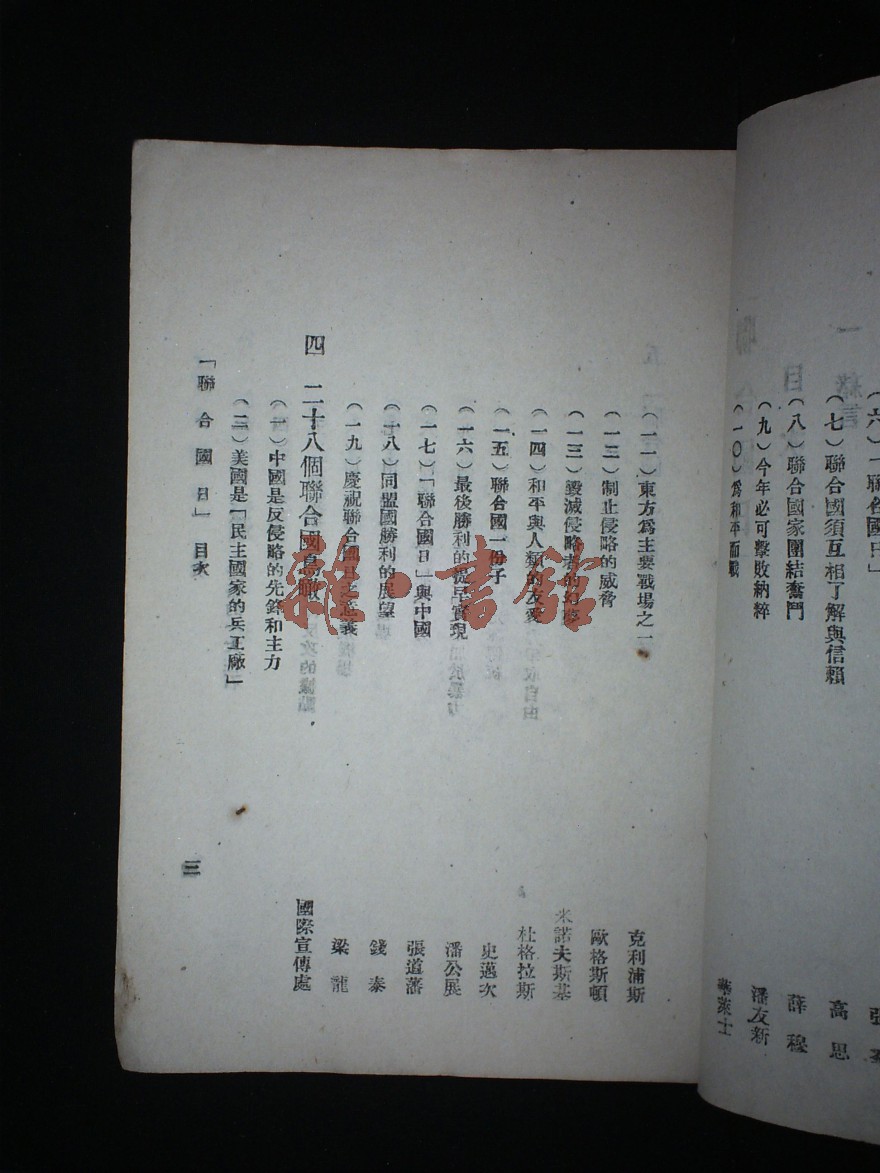 （七）聯合國須互相了解與信賴
高思
（八）聯合國家團結奮鬥
薛穆
（九）今年必可擊敗納粹
潘友新
（一〇）爲和平而戰
華萊士
（一一）東方爲主要戰場之一
克利浦斯
（一二）制止侵略的威脅
歐格斯頓
（一三）毀滅侵略者的幻夢
米諾夫斯基
（一四）和平與人類的友愛
杜格拉斯
（一五）聯合國一份子
史邁次
（一六）最後勝利的提早實現
潘公展
（一七）「聯合國日」與中國
張道藩
（一八）同盟國勝利的展望
錢泰
（一九）慶祝聯合國日之意義
梁龍
四 二十八個聯合國鳥瞰
國際宣傳處
（一）中國是反侵略的先鋒和主力
（二）美國是「民主國家的兵工廠」
「聯合國日」 目次
三
雜·書館